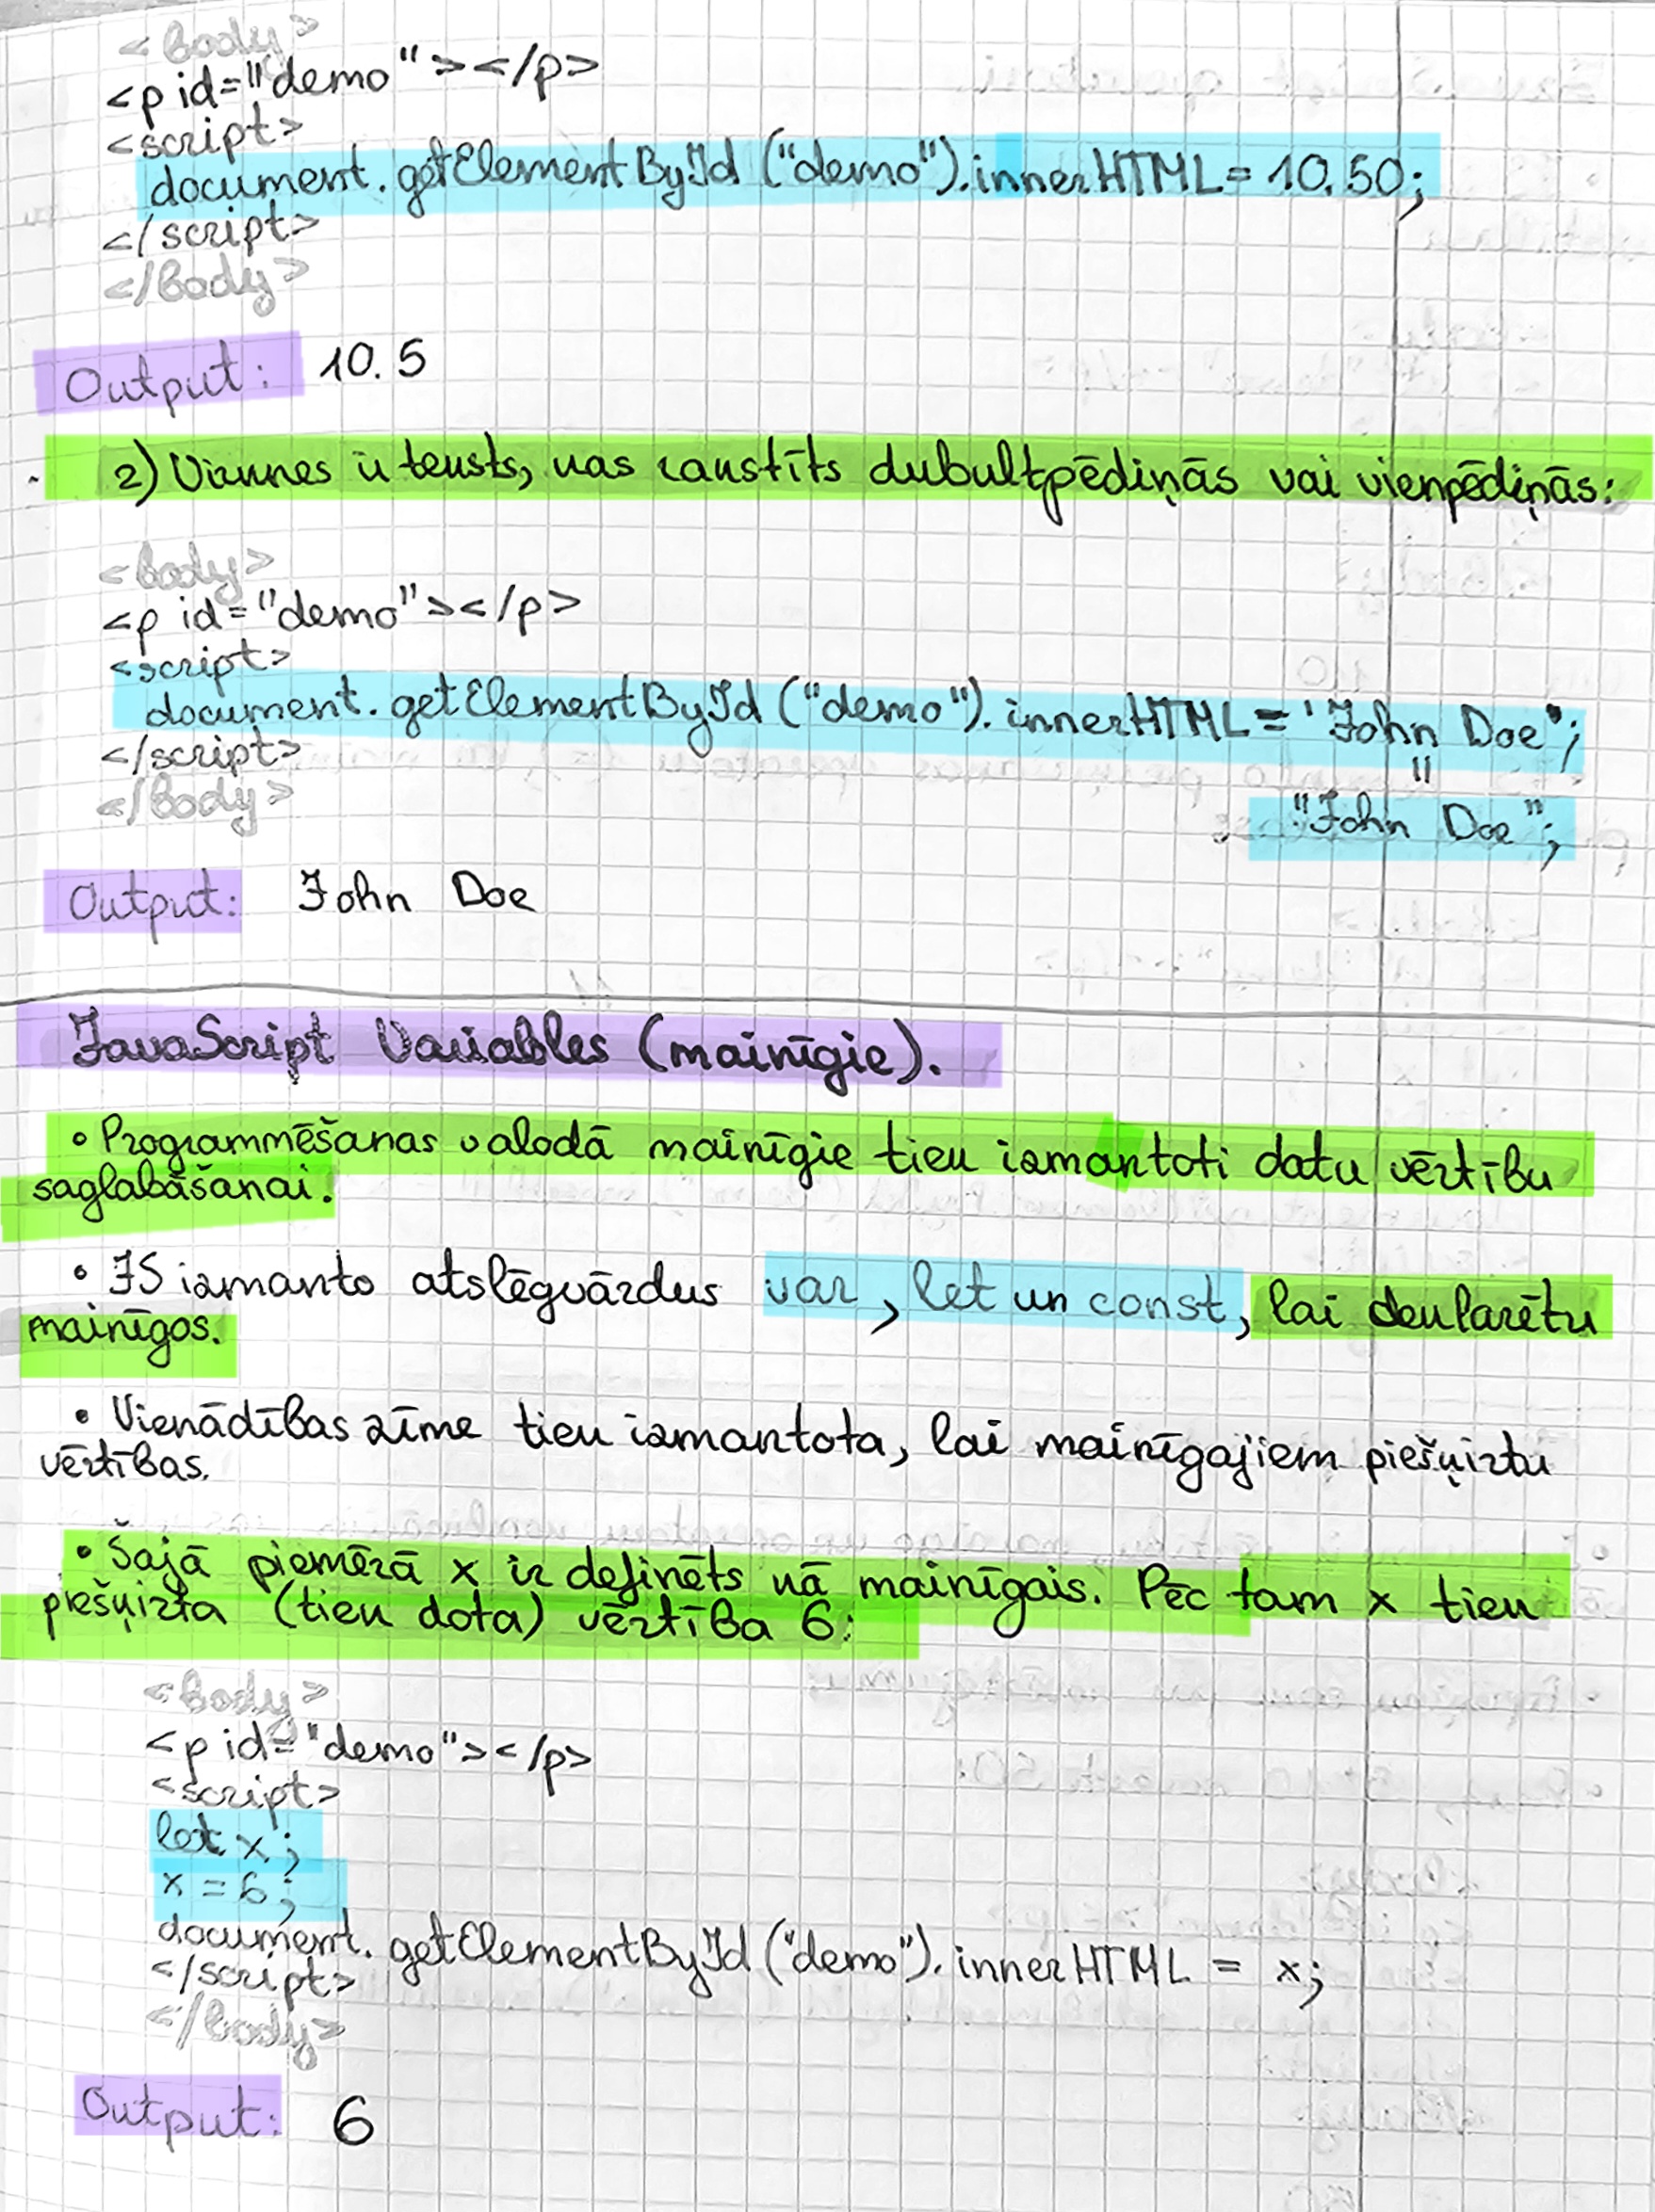 <body>
<p id="demo"></p>
<script>
document.getElementById("demo").innerHTML = 10.50;
</script>
</body>
Output: 10.5
2) Virknes ir teksts, kas rakstīts dubultpēdiņās vai vienpēdiņās:
<body>
<p id="demo"></p>
<script>
document.getElementById("demo").innerHTML = 'John Doe';
</script>
=
</body>
"John Doe";
Output: John Doe
JavaScript Variables (mainīgie).
• Programmēšanas valodā mainīgie tiek izmantoti datu vērtību
saglabāšanai.
• JS izmanto atslēgvārdus var, let un const, lai deklarētu
mainīgos.
• Vienādības zīme tiek izmantota, lai mainīgajiem piešķirtu
vērtības.
• Šajā piemērā x ir definēts kā mainīgais. Pēc tam x tiek
piešķirta (tiek dota) vērtība 6:
<body>
<p id="demo"></p>
<script>
let x;
x = 6;
document.getElementById("demo").innerHTML = x;
</script>
</body>
Output: 6